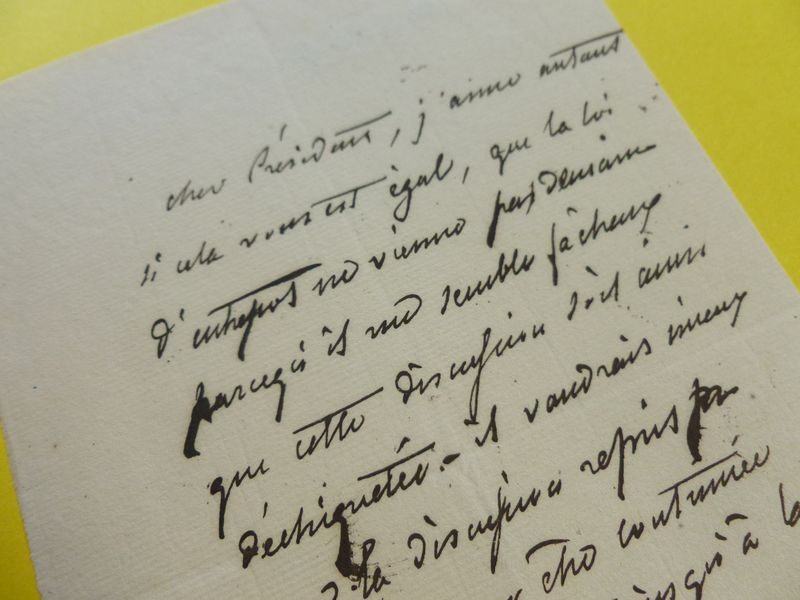 cher Président, j'aime autant
si cela vous est égal, que la loi
d'entrepot ne vienne pas demain
parcequ'il me semble fâcheux
que cette discussion soit ainsi
déchiquetée - il vaudrait mieux
la discussion reprise
continuée
jusqu'à la